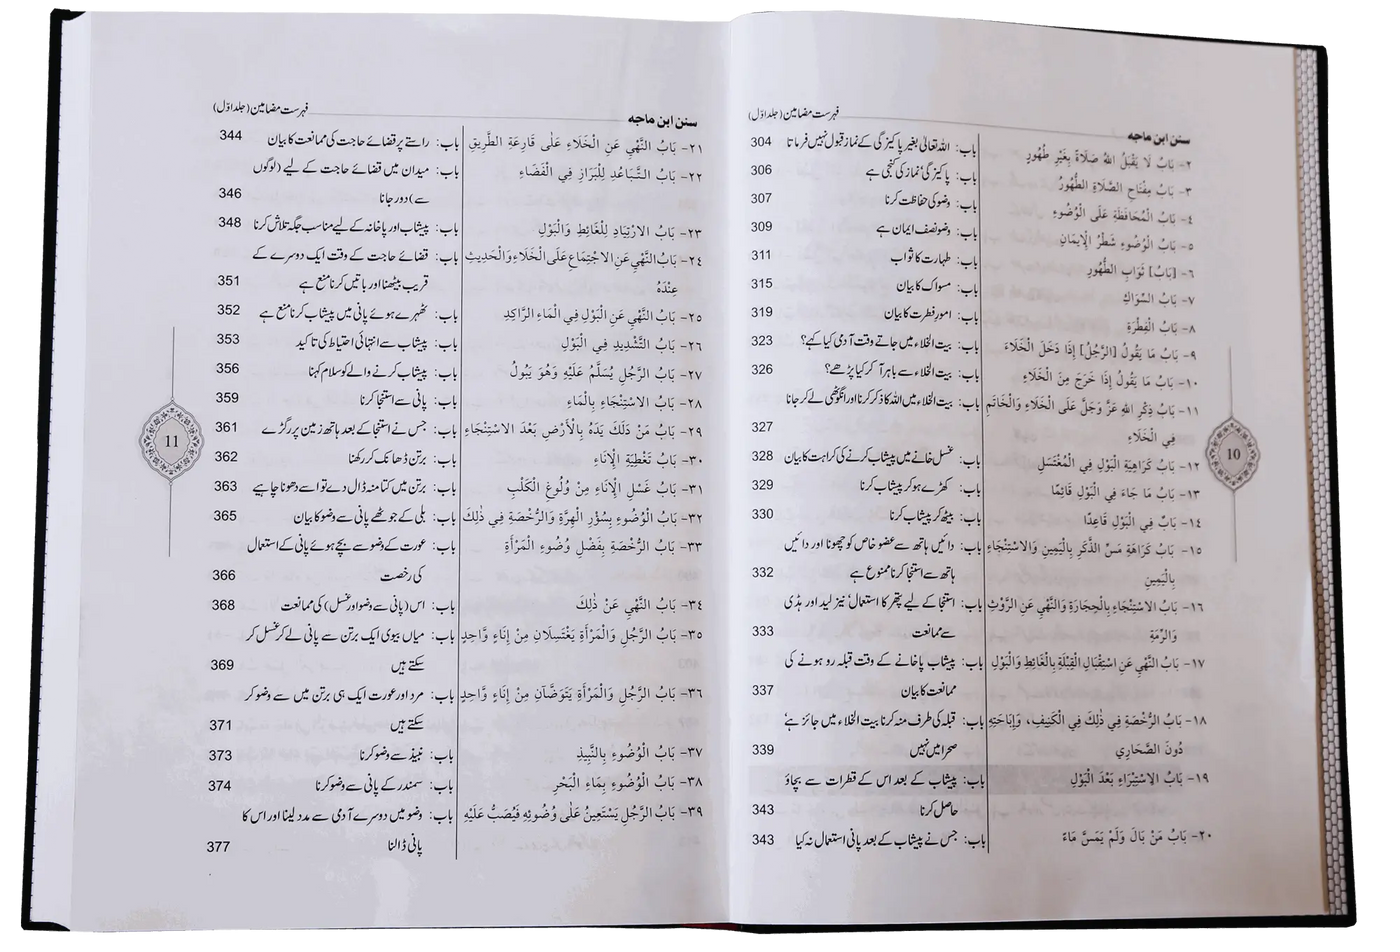 سنن ابن ماجه
فہرست مضامین (جلد اوّل)
٢- بَابُ لَا يَقْبَلُ اللهُ صَلَاةً بِغَيْرِ طُهُورٍ باب: اللہ تعالیٰ بغیر پاکیزگی کے نماز قبول نہیں فرماتا 304
٣- بَابُ مِفْتَاحِ الصَّلَاةِ الطُّهُورُ باب: پاکیزگی نماز کی کنجی ہے 306
٤- بَابُ الْمُحَافَظَةِ عَلَى الْوُضُوءِ باب: وضو کی حفاظت کرنا 307
٥- بَابُ الْوُضُوءِ شَطْرُ الْإِيمَانِ باب: وضو نصف ایمان ہے 309
٦- [بَابُ] ثَوَابِ الطُّهُورِ باب: طہارت کا ثواب 311
٧- بَابُ السِّوَاكِ باب: مسواک کا بیان 315
٨- بَابُ الْفِطْرَةِ باب: امور فطرت کا بیان 319
٩- بَابُ مَا يَقُولُ [الرَّجُلُ] إِذَا دَخَلَ الْخَلَاءَ باب: بیت الخلاء میں جاتے وقت آدمی کیا کہے؟ 323
١٠- بَابُ مَا يَقُولُ إِذَا خَرَجَ مِنَ الْخَلَاءِ باب: بیت الخلاء سے باہر آ کر کیا پڑھے؟ 326
١١- بَابُ ذِكْرِ اللهِ عَزَّ وَجَلَّ عَلَى الْخَلَاءِ وَالْخَاتَمِ باب: بیت الخلاء میں اللہ کا ذکر کرنا اور انگوٹھی لے کر جانا
فِي الْخَلَاءِ 327
١٢- بَابُ كَرَاهِيَةِ الْبَوْلِ فِي الْمُغْتَسَلِ باب: غسل خانے میں پیشاب کرنے کی کراہت کا بیان 328
١٣- بَابُ مَا جَاءَ فِي الْبَوْلِ قَائِمًا باب: کھڑے ہو کر پیشاب کرنا 329
١٤- بَابٌ فِي الْبَوْلِ قَاعِدًا باب: بیٹھ کر پیشاب کرنا 330
١٥- بَابُ كَرَاهَةِ مَسِّ الذَّكَرِ بِالْيَمِينِ وَالاسْتِنْجَاءِ باب: دائیں ہاتھ سے عضو خاص کو چھونا اور دائیں
بِالْيَمِينِ ہاتھ سے استنجا کرنا ممنوع ہے 332
١٦- بَابُ الاسْتِنْجَاءِ بِالْحِجَارَةِ وَالنَّهْيِ عَنِ الرَّوْثِ باب: استنجا کے لیے پتھر کا استعمال نیز لید اور ہڈی
وَالرِّمَّةِ سے ممانعت 333
١٧- بَابُ النَّهْيِ عَنِ اسْتِقْبَالِ الْقِبْلَةِ بِالْغَائِطِ وَالْبَوْلِ باب: پیشاب پاخانے کے وقت قبلہ رو ہونے کی
ممانعت کا بیان 337
١٨- بَابُ الرُّخْصَةِ فِي ذٰلِكَ فِي الْكَنِيفِ، وَإِبَاحَتِهِ باب: قبلہ کی طرف منہ کرنا بیت الخلاء میں جائز ہے
دُونَ الصَّحَارِي صحرا میں نہیں 339
١٩- بَابُ الاسْتِبْرَاءِ بَعْدَ الْبَوْلِ باب: پیشاب کے بعد اس کے قطرات سے بچاؤ
حاصل کرنا 343
٢٠- بَابُ مَنْ بَالَ وَلَمْ يَمَسَّ مَاءً باب: جس نے پیشاب کے بعد پانی استعمال نہ کیا 343
10
سنن ابن ماجه
فہرست مضامین (جلد اوّل)
٢١- بَابُ النَّهْيِ عَنِ الْخَلَاءِ عَلٰى قَارِعَةِ الطَّرِيقِ باب: راستے پر قضائے حاجت کی ممانعت کا بیان 344
٢٢- بَابُ التَّبَاعُدِ لِلْبَرَازِ فِي الْفَضَاءِ باب: میدان میں قضائے حاجت کے لیے (لوگوں
سے) دور جانا 346
٢٣- بَابُ الارْتِيَادِ لِلْغَائِطِ وَالْبَوْلِ باب: پیشاب اور پاخانہ کے لیے مناسب جگہ تلاش کرنا 348
٢٤- بَابُ النَّهْيِ عَنِ الاجْتِمَاعِ عَلَى الْخَلَاءِ وَالْحَدِيثِ باب: قضائے حاجت کے وقت ایک دوسرے کے
عِنْدَهُ قریب بیٹھنا اور باتیں کرنا منع ہے 351
٢٥- بَابُ النَّهْيِ عَنِ الْبَوْلِ فِي الْمَاءِ الرَّاكِدِ باب: ٹھہرے ہوئے پانی میں پیشاب کرنا منع ہے 352
٢٦- بَابُ التَّشْدِيدِ فِي الْبَوْلِ باب: پیشاب سے انتہائی احتیاط کی تاکید 353
٢٧- بَابُ الرَّجُلِ يُسَلَّمُ عَلَيْهِ وَهُوَ يَبُولُ باب: پیشاب کرنے والے کو سلام کہنا 356
٢٨- بَابُ الاسْتِنْجَاءِ بِالْمَاءِ باب: پانی سے استنجا کرنا 359
٢٩- بَابُ مَنْ دَلَكَ يَدَهُ بِالْأَرْضِ بَعْدَ الاسْتِنْجَاءِ باب: جس نے استنجا کے بعد ہاتھ زمین پر رگڑے 361
٣٠- بَابُ تَغْطِيَةِ الْإِنَاءِ باب: برتن ڈھانک کر رکھنا 362
٣١- بَابُ غَسْلِ الْإِنَاءِ مِنْ وُلُوغِ الْكَلْبِ باب: برتن میں کتا منہ ڈال دے تو اسے دھونا چاہیے 363
٣٢- بَابُ الْوُضُوءِ بِسُؤْرِ الْهِرَّةِ وَالرُّخْصَةِ فِي ذٰلِكَ باب: بلی کے جوٹھے پانی سے وضو کا بیان 365
٣٣- بَابُ الرُّخْصَةِ بِفَضْلِ وُضُوءِ الْمَرْأَةِ باب: عورت کے وضو سے بچے ہوئے پانی کے استعمال
کی رخصت 366
٣٤- بَابُ النَّهْيِ عَنْ ذٰلِكَ باب: اس (پانی سے وضو اور غسل) کی ممانعت 368
٣٥- بَابُ الرَّجُلِ وَالْمَرْأَةِ يَغْتَسِلَانِ مِنْ إِنَاءٍ وَاحِدٍ باب: میاں بیوی ایک برتن سے پانی لے کر غسل کر
سکتے ہیں 369
٣٦- بَابُ الرَّجُلِ وَالْمَرْأَةِ يَتَوَضَّآنِ مِنْ إِنَاءٍ وَّاحِدٍ باب: مرد اور عورت ایک ہی برتن میں سے وضو کر
سکتے ہیں 371
٣٧- بَابُ الْوُضُوءِ بِالنَّبِيذِ باب: نبیذ سے وضو کرنا 373
٣٨- بَابُ الْوُضُوءِ بِمَاءِ الْبَحْرِ باب: سمندر کے پانی سے وضو کرنا 374
٣٩- بَابُ الرَّجُلِ يَسْتَعِينُ عَلٰى وُضُوئِهِ فَيُصَبُّ عَلَيْهِ باب: وضو میں دوسرے آدمی سے مدد لینا اور اس کا
پانی ڈالنا 377
11